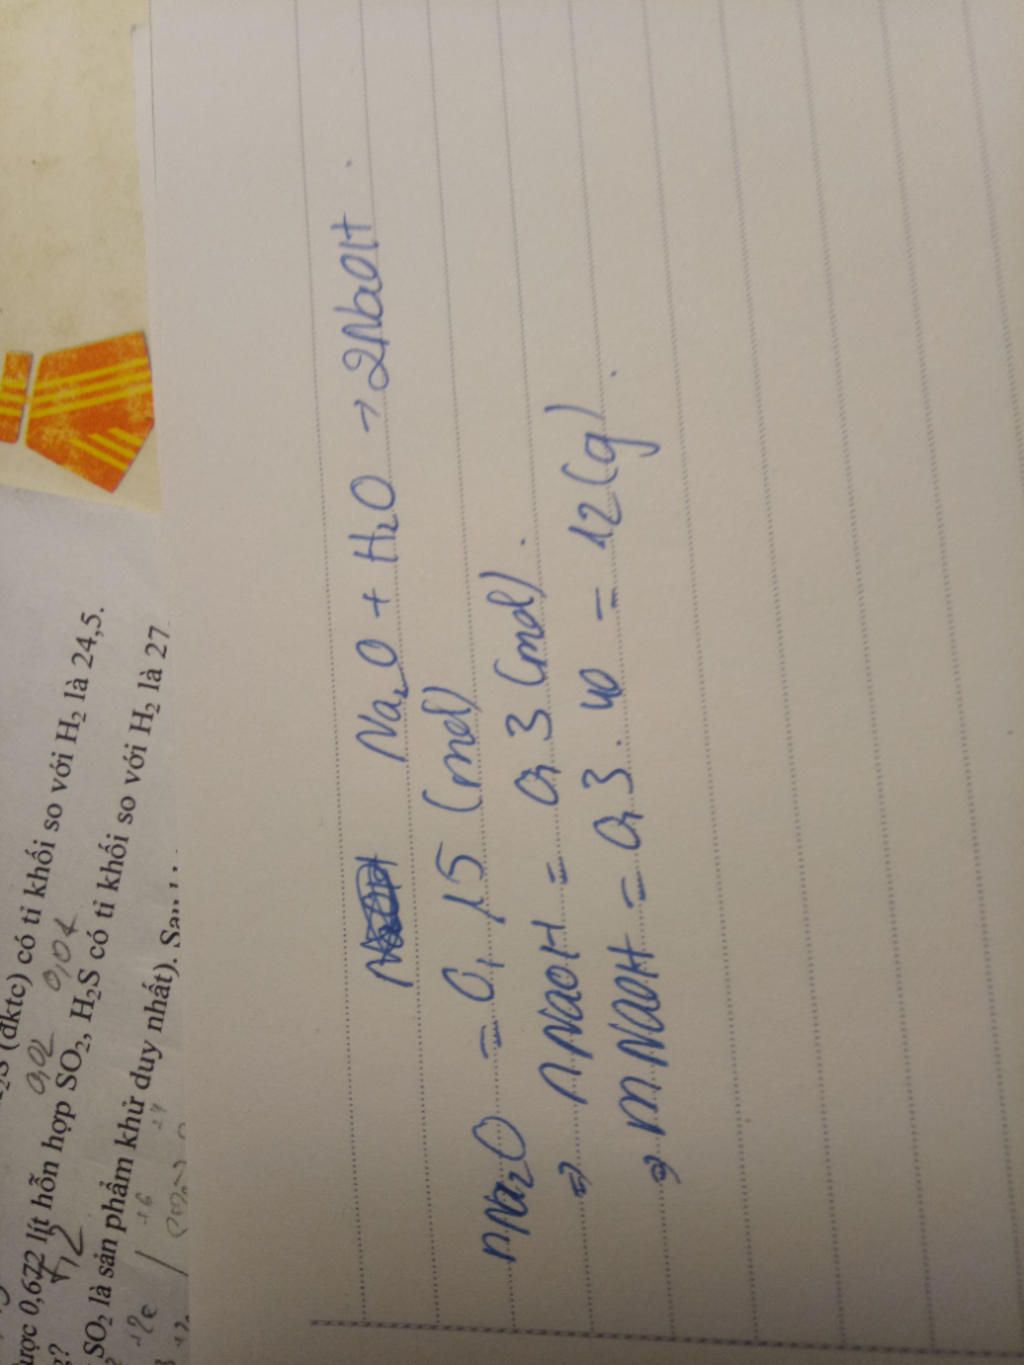 (đktc) có tỉ khối so với H₂ là 24,5.
0,02 0,01
ược 0,672 lít hỗn hợp SO₂, H₂S có tỉ khối so với H₂ là 27
SO₂ là sản phẩm khử duy nhất).
Na₂O + H₂O → 2NaOH.
nNa₂O = 0,15 (mol)
⇒ nNaOH = 0,3 (mol).
⇒ mNaOH = 0,3.40 = 12(g).